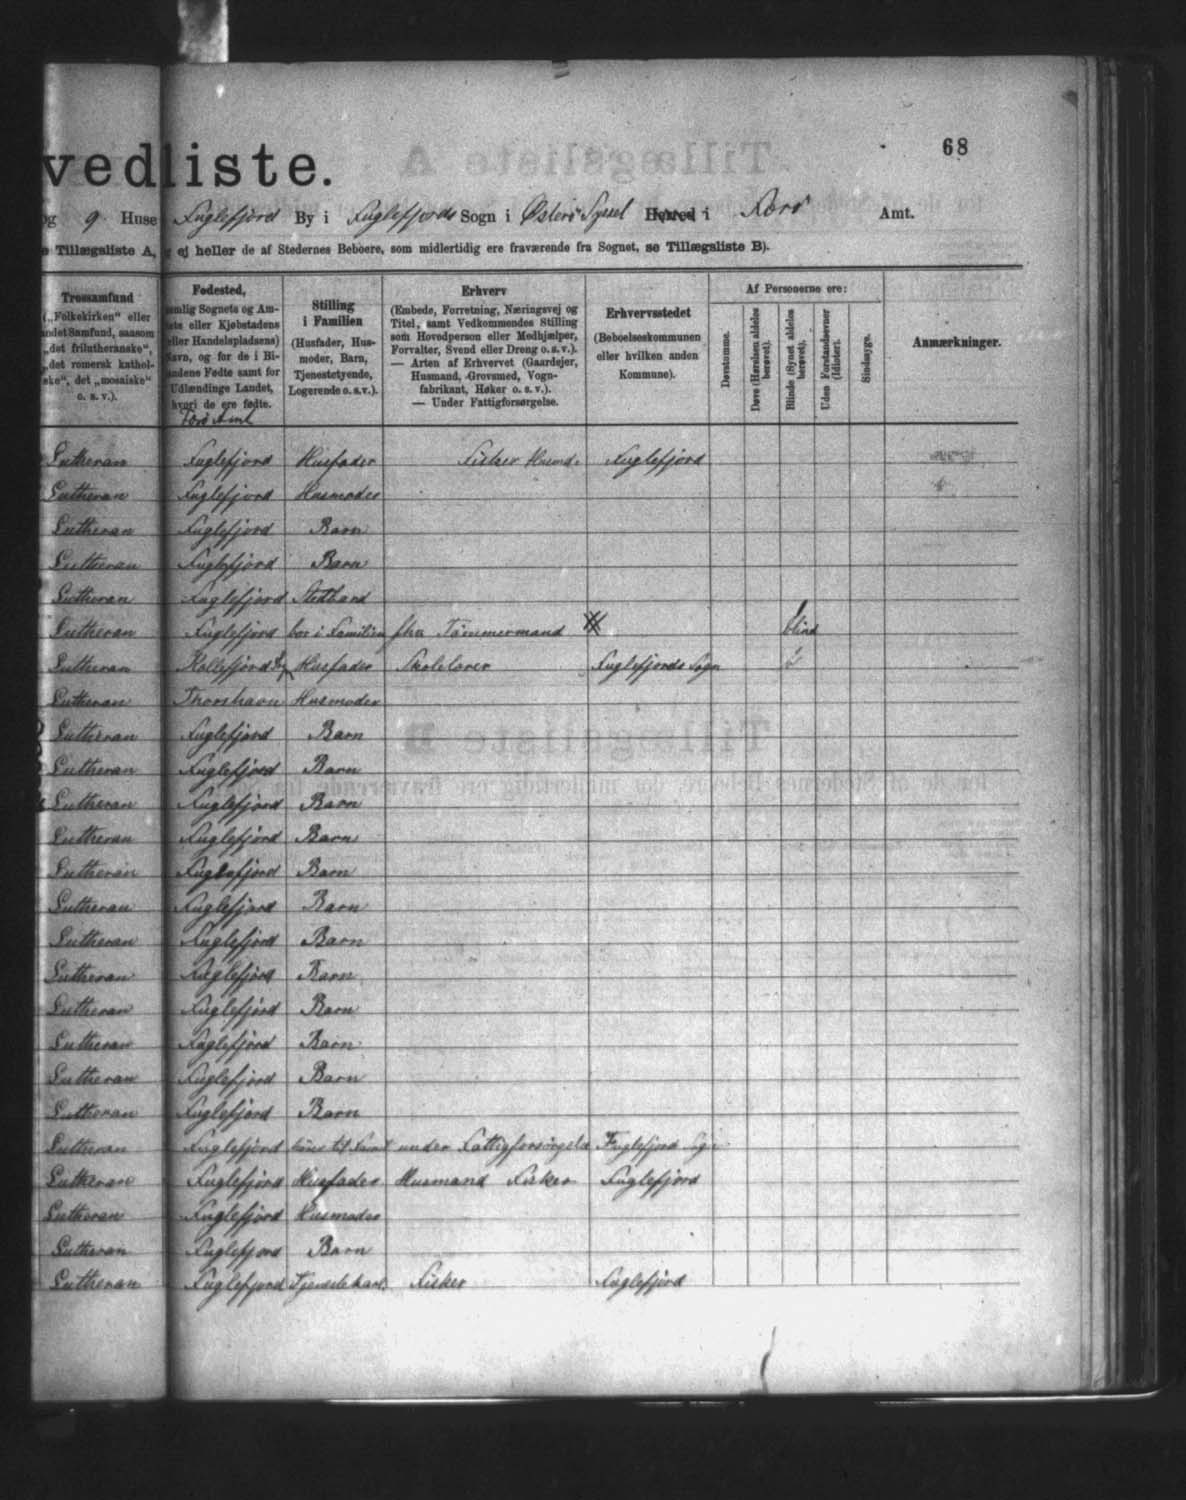 vedliste.
68
og 9 Huse Fuglefjord By i Fuglefjords Sogn i Østerø Syssel Herred i Færø Amt.
e Tillægsliste A, ej heller de af Stedernes Beboere, som midlertidig ere fraværende fra Sognet, se Tillægsliste B).
Trossamfund
(„Folkekirken“ eller
andet Samfund, saasom
„det frilutheranske“,
„det romersk kathol-
ske“, det „mosaiske“
o. s. v.).
Fødested,
nemlig Sognets og Am-
tets eller Kjøbstadens
(eller Handelspladsens)
Navn, og for de i Bi-
landene Fødte samt for
Udlændinge Landet,
hvori de ere fødte.
Færø Amt
Stilling
i Familien
(Husfader, Hus-
moder, Barn,
Tjenestetyende,
Logerende o. s. v.).
Erhverv
(Embede, Forretning, Næringsvej og
Titel, samt Vedkommendes Stilling
som Hovedperson eller Medhjælper,
Forvalter, Svend eller Dreng o. s. v.).
— Arten af Erhvervet (Gaardejer,
Husmand, Grovsmed, Vogn-
fabrikant, Høker o. s. v.).
— Under Fattigforsørgelse.
Erhvervsstedet
(Beboelseskommunen
eller hvilken anden
Kommune).
Af Personerne ere:
Døvstumme.
Døve (Hørelsen aldeles
berøvet).
Blinde (Synet aldeles
berøvet).
Uden Forstandsevner
(Idioter).
Sindssyge.
Anmærkninger.
Lutheran Fuglefjord Husfader Fisker Husmd. Fuglefjord
Lutheran Fuglefjord Husmoder
Lutheran Fuglefjord Barn
Lutheran Fuglefjord Barn
Lutheran Fuglefjord Stedbarn
Lutheran Fuglefjord bor i Familien fhv Tømmermand blind
Lutheran Kollefjord Husfader Skolelærer Fuglefjords Sogn
Lutheran Thorshavn Husmoder
Lutheran Fuglefjord Barn
Lutheran Fuglefjord Barn
Lutheran Fuglefjord Barn
Lutheran Fuglefjord Barn
Lutheran Fuglefjord Barn
Lutheran Fuglefjord Barn
Lutheran Fuglefjord Barn
Lutheran Fuglefjord Barn
Lutheran Fuglefjord Barn
Lutheran Fuglefjord Barn
Lutheran Fuglefjord Barn
Lutheran Fuglefjord Barn
Lutheran Fuglefjord under Fattigforsørgelse Fuglefjord Sogn
Lutheran Fuglefjord Husfader Husmand Fisker Fuglefjord
Lutheran Fuglefjord Husmoder
Lutheran Fuglefjord Barn
Lutheran Fuglefjord Tjenestekarl Fisker Fuglefjord